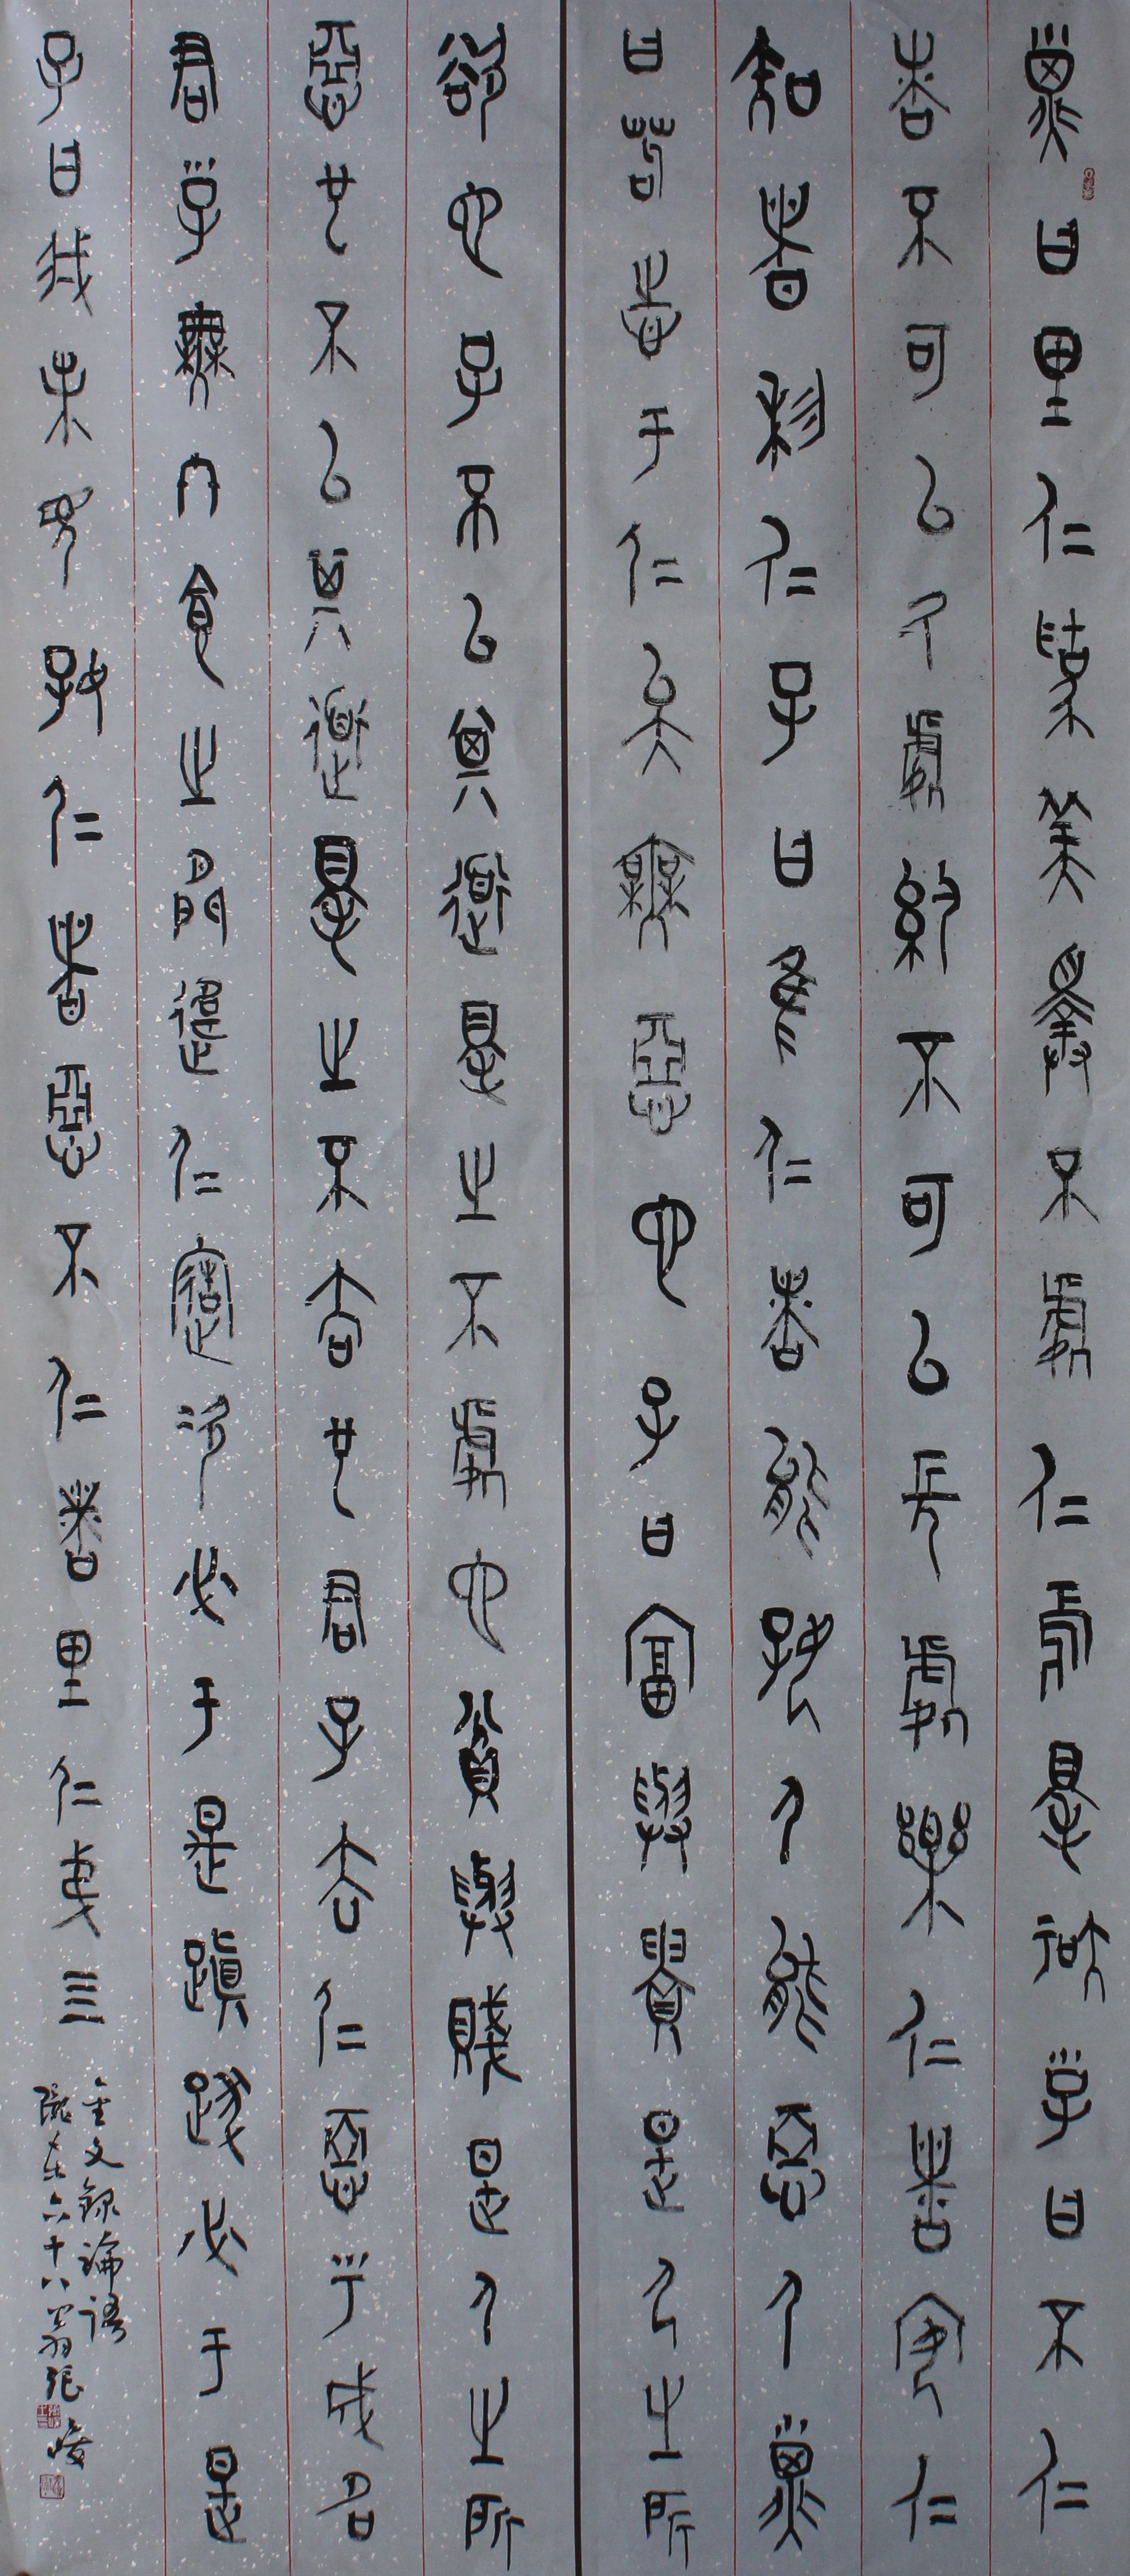 子曰里仁為美擇不處仁焉得知子曰不仁
者不可以久處約不可以長處樂仁者安仁
知者利仁子曰唯仁者能好人能惡人子
曰苟志于仁矣無惡也子曰富與貴是人之所
欲也子不以其道得之不處也貧與賤是人之所
惡也不以其道得之不去也君子去仁惡乎成名
君子無終食之間違仁造次必于是顛沛必于是
子曰我未見好仁者惡不仁者里仁弟四
金文錄論語
六十八翁張峻